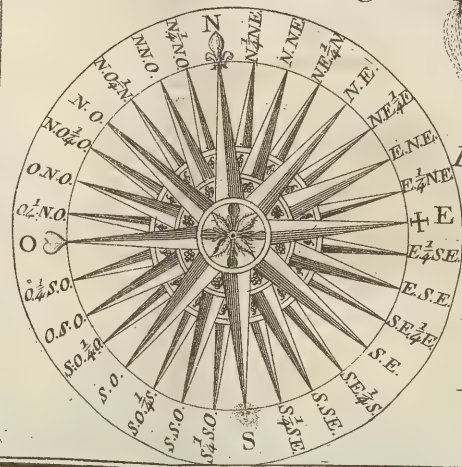 N
N¼NE
N.NE
NE¼N
N.E.
NE¼E
E.NE.
E¼NE
E
E¼S.E.
E.S.E.
S.E¼E.
S.E.
S.E¼S.
S.SE.
S¼SE.
S
S¼S.O
S.S.O.
S.O¼S.
S.O.
S.O.¼O.
O.S.O.
O.¼S.O.
O
O¼.N.O.
O.N.O.
N.O¼O.
N.O.
N.O¼N.
N.N.O.
N¼N.O.